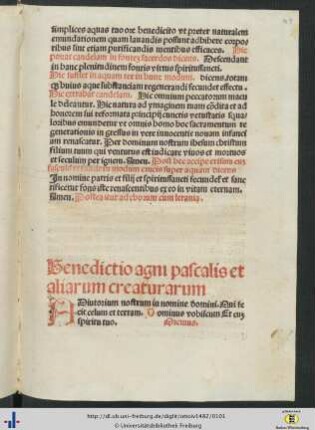 simplices aquas tuo ore benedicito vt preter naturalem
emundationem quam lauandis possunt adhibere corpos
ribus sint etiam purificandis mentibus efficaces. Hic
ponat candelam in fontez sacerdos dicens. Descendat
in hanc plenitudinem fontis virtus spiritussancti.
Hic sufflet in aquam ter in hunc modum. dicens. totam
q; huius aque substanciam regenerandi fecundet effectu.
Hic extrahat candelam. Hic omnium peccatorum macu
le deleantur. Hic natura ad ymaginem tuam condita et ad
honorem sui reformata principij cunctis vetustatis squa
loribus emundetur vt omnis homo hoc sacramentum re
generationis in gressus in vere innocentie nouam infanci
am renascatur. Per dominum nostrum ihesum christum
filium tuum qui venturus est iudicare viuos et mortuos
et seculum per ignem. Amen. Post hec accipe crisma
super aquam dicens
In nomine patris et filij et spiritussancti fecundet et sanc
tificetur fons iste renascentibus ex eo in vitam eternam.
Amen. Postea eat ad chorum cum letania.
Benedictio agni pascalis et
aliarum creaturarum
ADiutorium nostrum in nomine domini. Qui fe
cit celum et terram. Dominus vobiscum Et cum
spiritu tuo. Oremus.
http://dl.ub.uni-freiburg.de/diglit/amcn1482/0101
© Universitätsbibliothek Freiburg